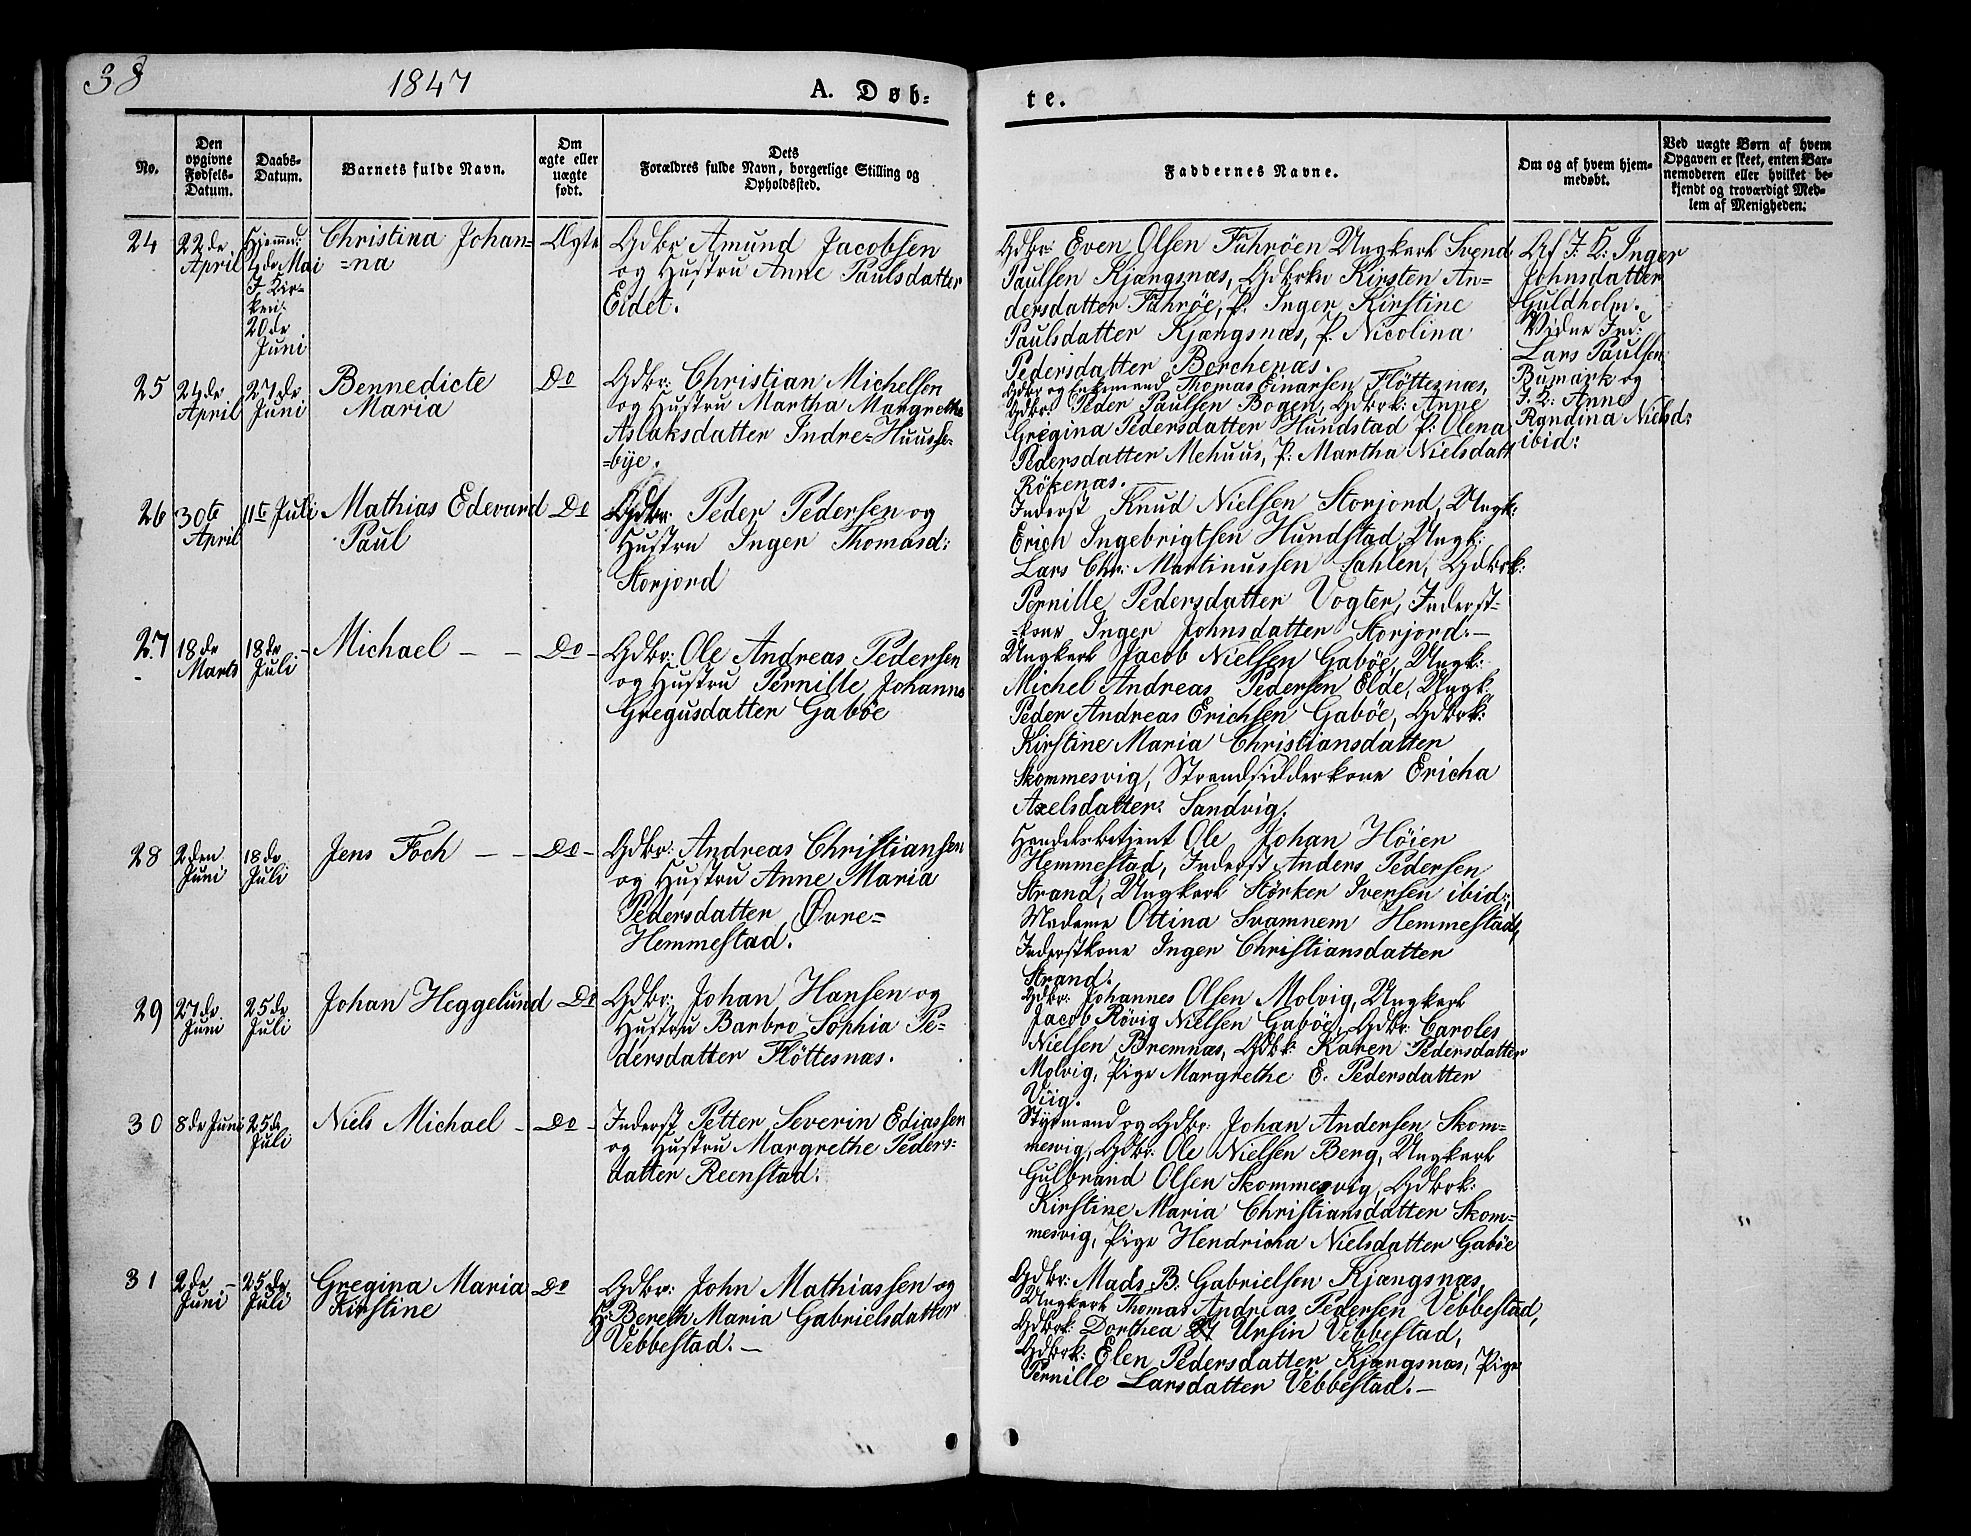 38
1847
A. Døb-
te.
No.
Den opgivne Fødsels-Datum.
Daabs-Datum.
Barnets fulde Navn.
Om ægte eller uægte født.
Dets Forældres fulde Navn, borgerlige Stilling og Opholdssted.
Faddernes Navne.
Om og af hvem hjem-
medøbt.
Ved uægte Børn af hvem
Opgaven er skeet, enten Bar-
nemoderen eller hvilket be-
kjendt og troværdigt Med-
lem af Menigheden.
24
22de
April
Hjemmed:
Mai
I Kir-
ken:
20de
Juni
Christina Johan-
=na
Ægte
Gdbr: Amund Jacobsen
og Hustru Anne Paulsdatter
Eidet.
Gdbr: Even Olsen Fuhrøen Ungkarl Svend
Paulsen Kjængsnæs, Gdbrkn Kirsten An-
dersdatter Fuhrøe, P. Inger Kirstine
Paulsdatter Kjængsnæs, P. Nicolina
Pedersdatter Borchenæs.
Af J. K: Inger
Johnsdatter
Guldholm.
Vidne Ind:
Lars Paulsen
og
J. K: Anne
Nielsd:
ibid:
25
24de
April
27de
Juni
Bennedicte
Maria
Do
Gdbr: Christian Michelsen
og Hustru Martha Margrethe
Aslaksdatter Indre-Huuse-
=bye.
Gdbr og Enkemand Thomas Einarsen Fløttesnæs,
Gdbr: Peder Paulsen Bogen, Gdbrk: Anne
Gregina Pedersdatter Hundstad P: Olena
Pedersdatter Mehuus, P: Martha Nielsdatt
Røkenæs.
26
30te
April
11te Juli
Mathias Edevard
Paul
Do
Gdbr: Peder Pedersen og
Hustru Inger Thomasd:
Storjord
Inderst Knud Nielsen Storjord, Ungk:
Erich Ingebrigtsen Hundstad, Ungk:
Lars Chr: Martinussen Sahlen, Gdbrk:
Pernille Pedersdatter Vogter, Inderst-
-kone Inger Johnsdatter Storjord.-
27
18de
Marts
18de
Juli
- Michael - -
Do -
Gdbr: Ole Andreas Pedersen
og Hustru Pernille Johanna
Gregusdatter Gabøe
Ungkarl Jacob Nielsen Gabøe, Ungk:
Michel Andreas Pedersen Elde, Ungk:
Peder Andreas Erichsen Gabøe, Gdbrk:
Kirstine Maria Christiansdatter
Skommesvig, Strandsidderkone Ericha
Axelsdatter Sandvig.
28
2den
Juni
18de
Juli
Jens Foch - -
Do -
Gdbr: Andreas Christiansen
og Hustru Anne Maria
Pedersdatter Øvre=
Hemmestad.
Handelsbetjent Ole Johan Høier
Hemmestad, Inderst Anders Pedersen
Strand, Ungkarl Størker Ivensen ibid:,
Madame Ottina Svamnem Hemmestad,
Inderstkone Inger Christiansdatter
Strand.
29
27de
Juni
25de
Juli
Johan Heggelund
Do
Gdbr: Johan Hansen og
Hustru Barbro Sophia Pe-
dersdatter Fløttesnæs.
Gdbr: Johannes Olsen Molvig, Ungkarl
Jacob Røvig Nielsen Gabøe, Gdbr: Caroles
Nielsen Bremnæs, Gdbk: Karen Pedersdatter
Molvig, Pige Margrethe E. Pedersdatter
Viig.
30
8de Juni
25de
Juli
Niels Michael -
Do -
Inderst Petter Severin Ediassen
og Hustru Margrethe Peders-
datter Reenstad.
Styrmand og Gdbr: Johan Andersen Skom-
mesvig, Gdbr: Ole Nielsen Berg, Ungkarl
Gulbrand Olsen Skommesvig, Gdbrk:
Kirstine Maria Christiansdatter Skom-
mesvig, Pige Hendricha Nielsdatter Gabøe
31
2de -
Juni
25de
Juli
Gregina Maria
Kirstine
Do
Gdbr: John Mathiassen og
H: Bereth Maria Gabrielsdatter
Vebbestad. -
Gdbr: Mads B. Gabrielsen Kjængsnæs,
Ungkarl Thomas Andreas Pedersen Vebbestad,
Gdbrk: Dorthea Ursin Vebbestad,
Gdbrk: Elen Pedersdatter Kjængsnæs, Pige
Pernille Larsdatter Vebbestad. -